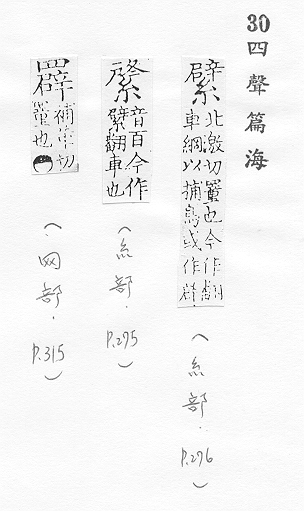 30 四聲篇海
繴 北激切罿也今作翻
車網以捕鳥或作
（糸部．P.276）
音百今作
繴翻車也
（糸部．P.295）
補革切
罿也
（网部．P.315）